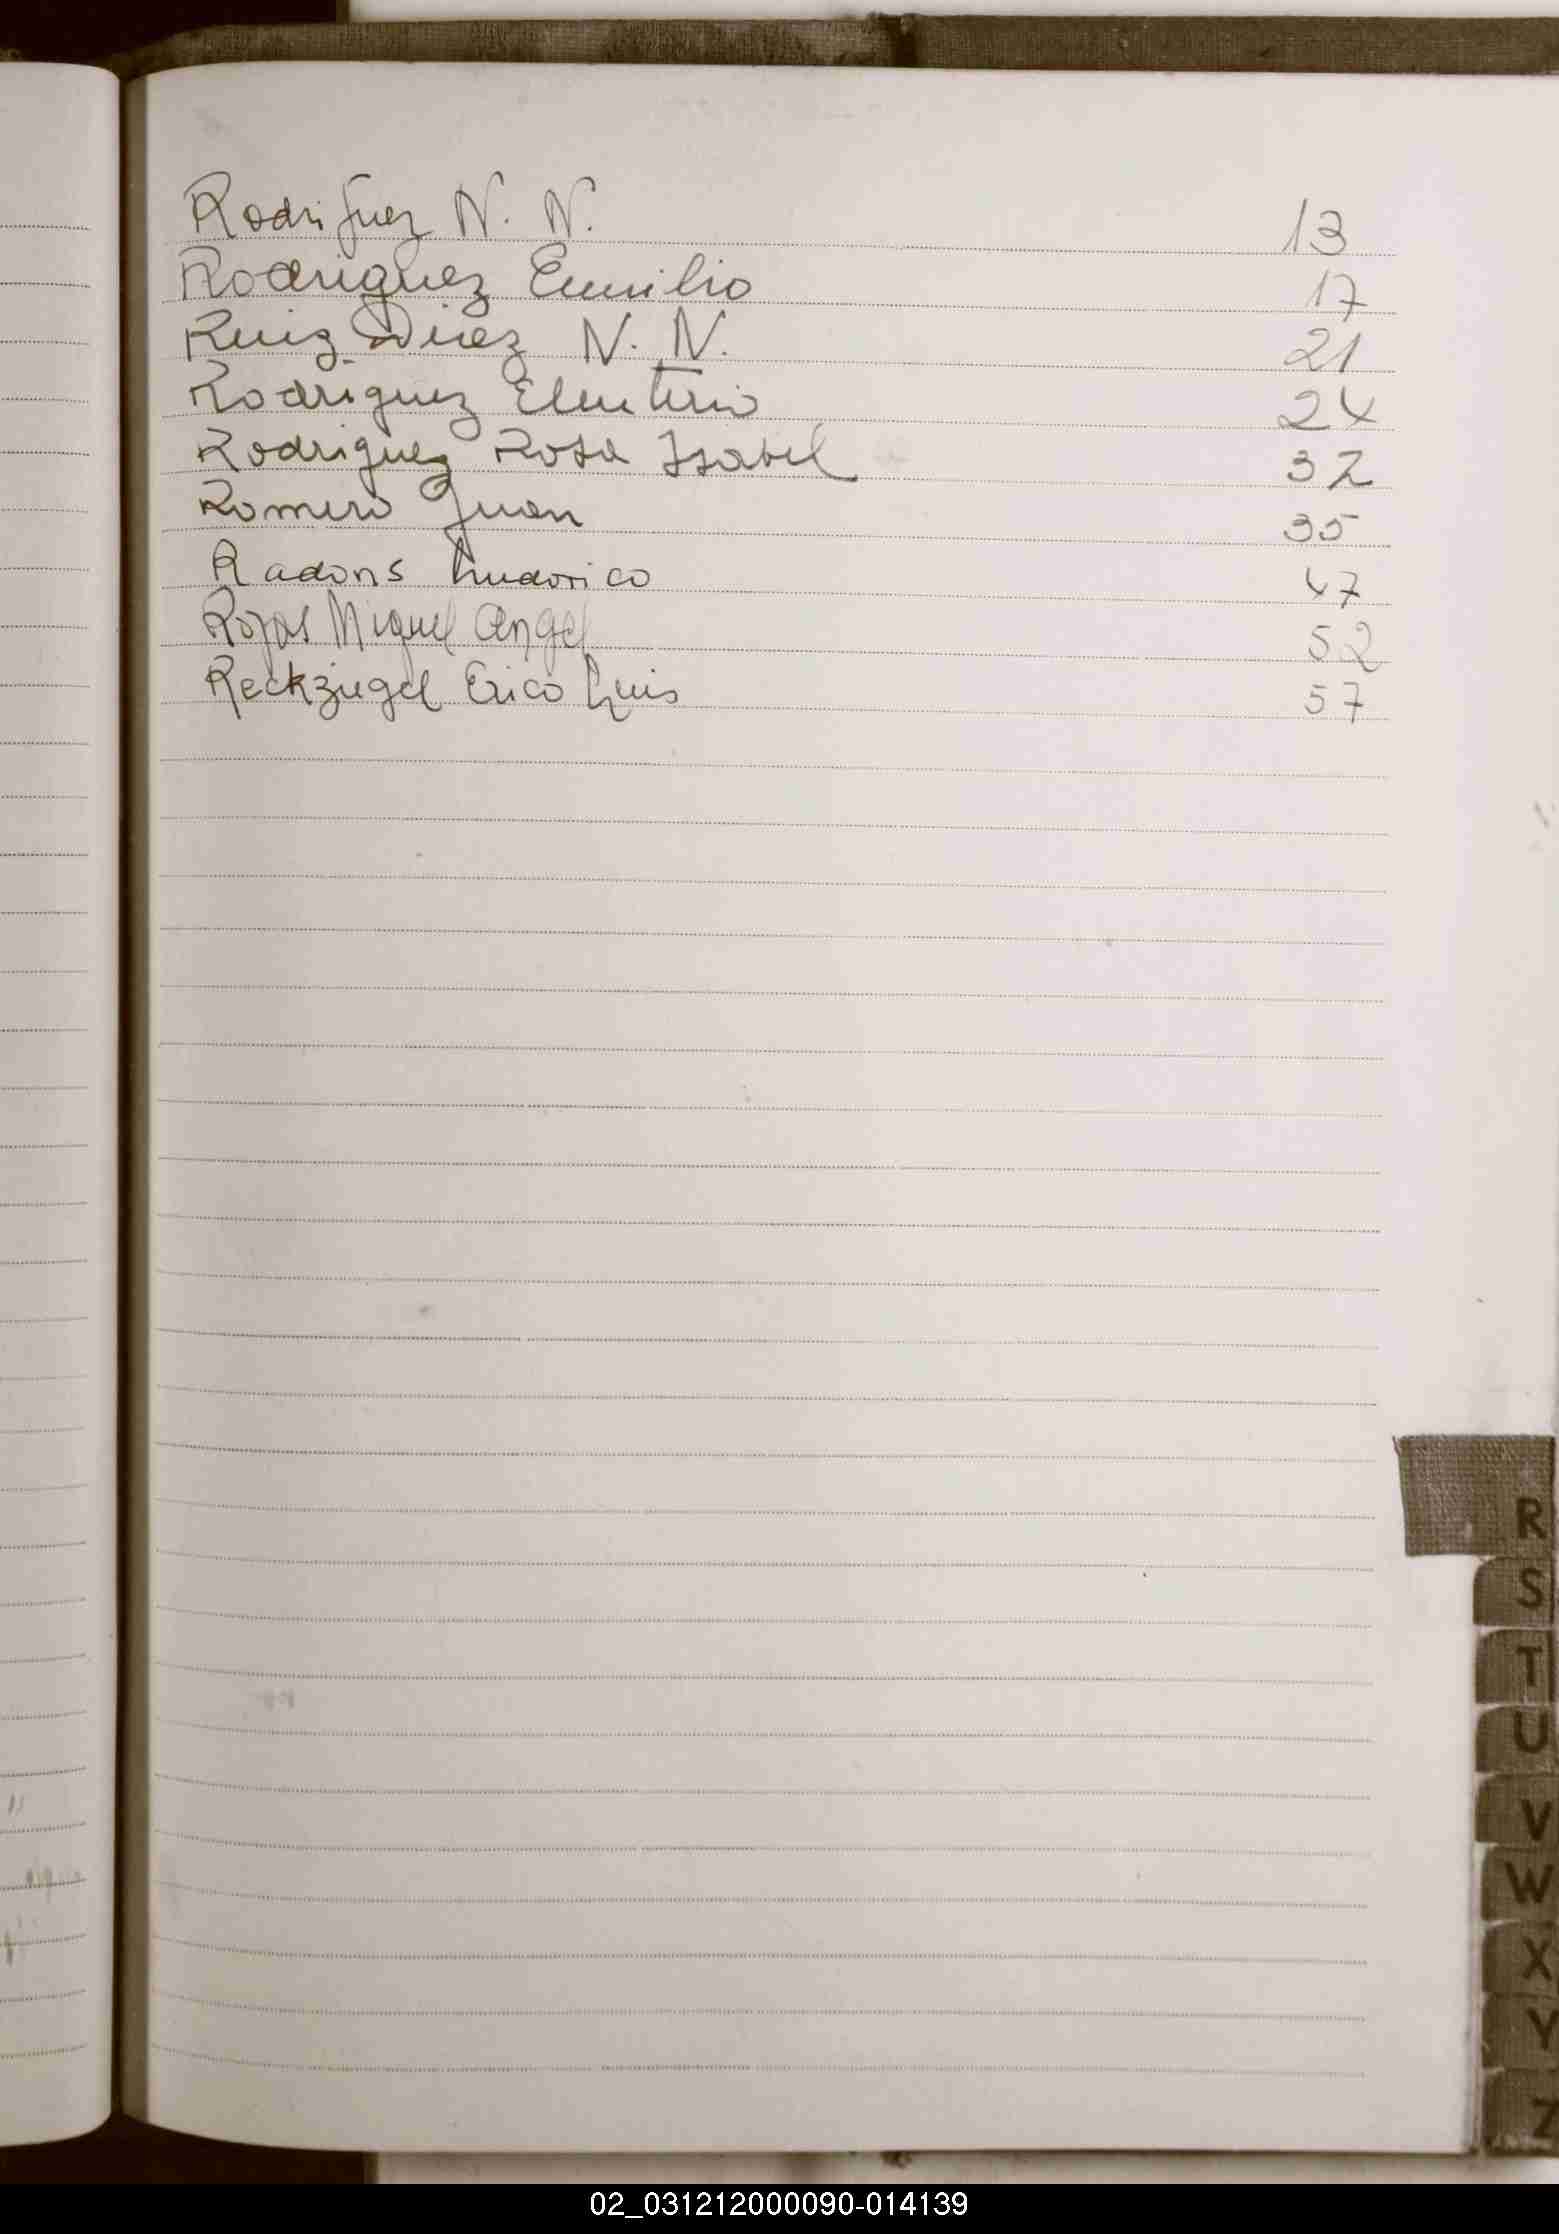 Rodriguez N. N. 13
Rodriguez Emilio 17
Ruiz Diaz N. N. 21
Rodriguez Eleuterio 24
Rodriguez Rosa Isabel 32
Romero Juan 35
Radons Ludovico 47
Rojas Miguel Angel 52
Reckziegel Erico Luis 57
R
S
T
U
V
W
X
Y
Z
02_031212000090-014139